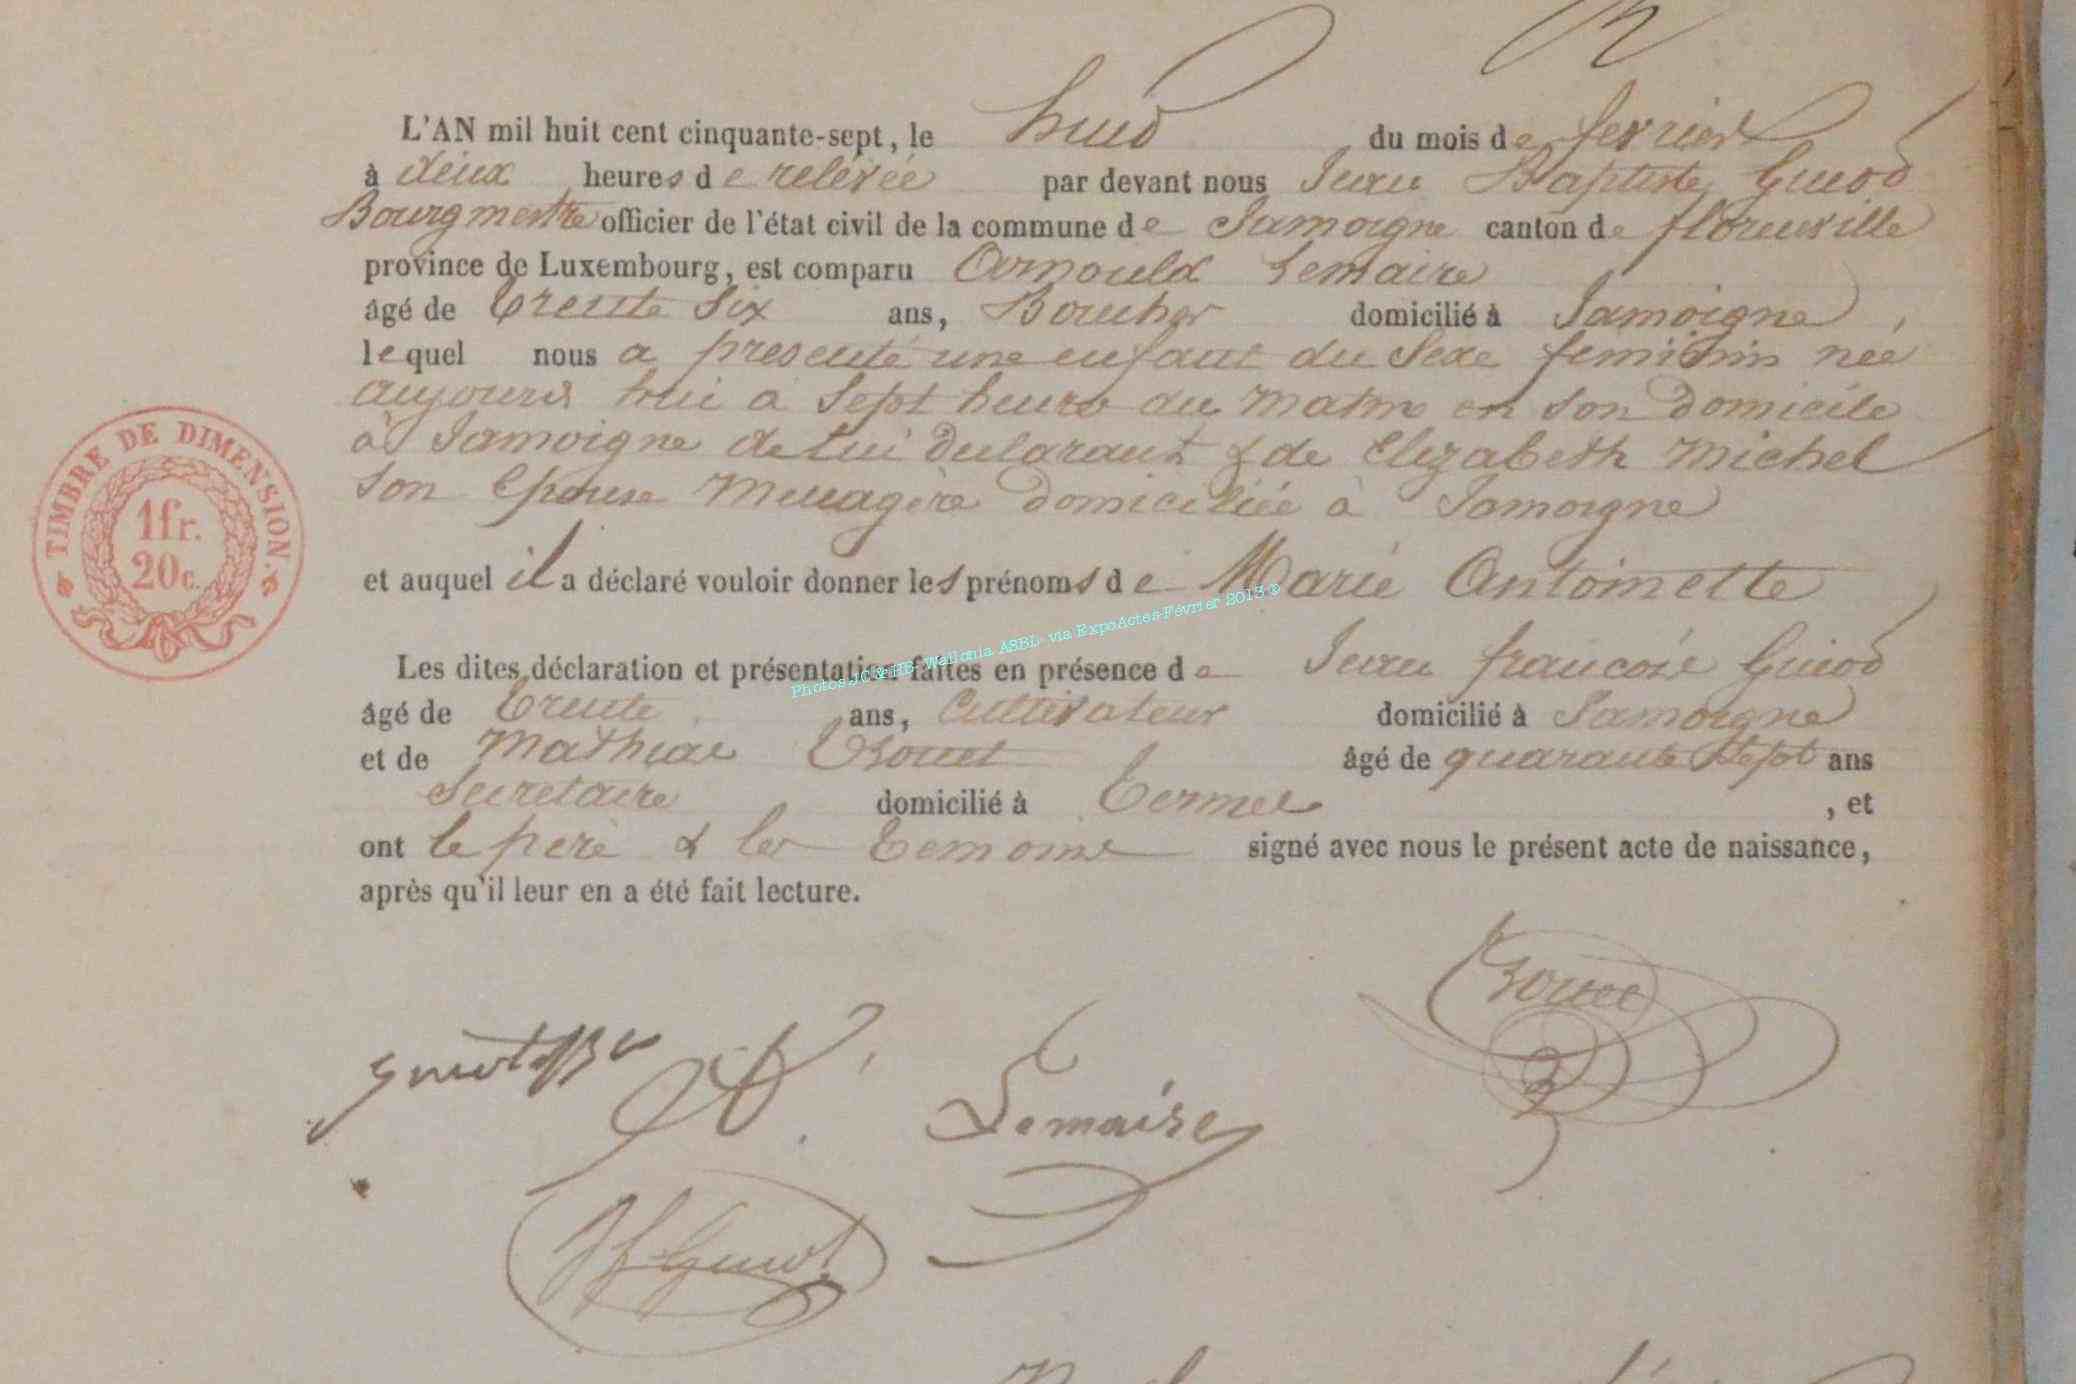 L'AN mil huit cent cinquante-sept, le huit du mois de fevrier
à deux heures de relévée par devant nous Jean Baptiste Guiot
Bourgmestre officier de l'état civil de la commune de Jamoigne canton de florenville
province de Luxembourg, est comparu Arnould Lemaire
âgé de trente six ans, Boucher domicilié à Jamoigne,
lequel nous a presenté une enfant du Sexe feminin née
aujourd hui a Sept heures du matin en son domicile
à Jamoigne de lui declarant & de Elizabeth Michel
son Epouse Menagère domiciliée à Jamoigne
et auquel il a déclaré vouloir donner les prénoms de Marie Antoinette
Les dites déclaration et présentation faites en présence de Jean francois Guiot
âgé de trente ans, Cultivateur domicilié à Jamoigne
et de Mathias Brouet âgé de quarante Sept ans
Secretaire domicilié à termes, et
ont le pere & les temoins signé avec nous le présent acte de naissance,
après qu'il leur en a été fait lecture.
TIMBRE DE DIMENSION.
1fr.
20c.
Photos JC & PB- Wallonia ASBL- via ExpoActes-Février 2013®
Brouet
Guiot JB
A. Lemaire
Jf Guiot